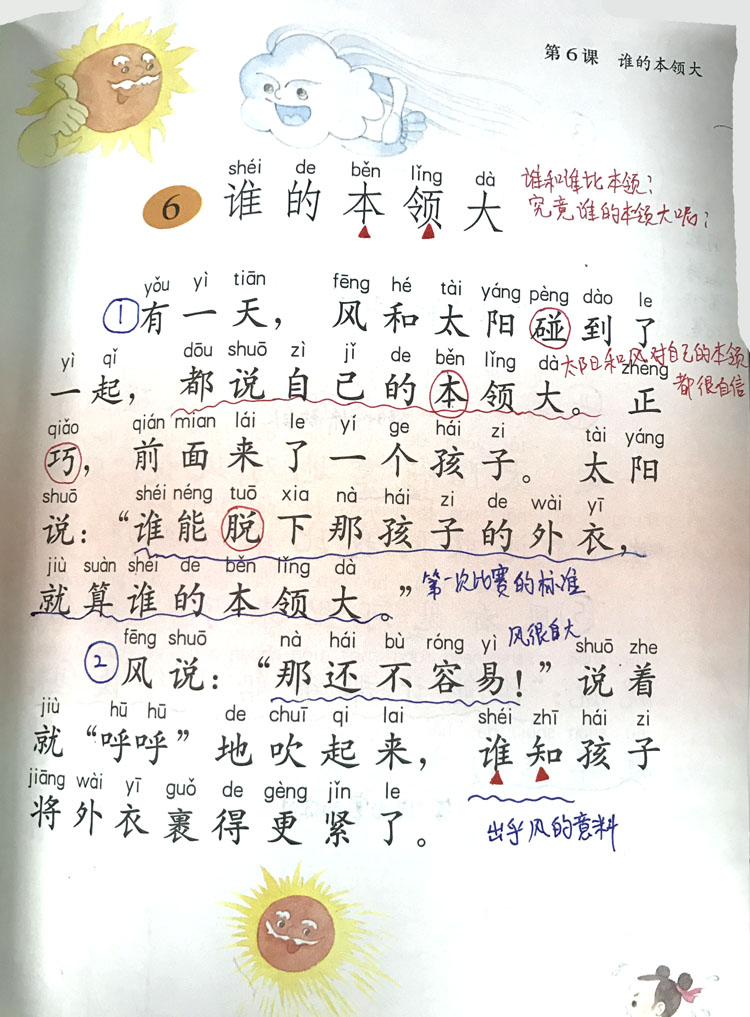 第6课 谁的本领大
shéi de běn lǐng dà
6 谁的本领大
谁和谁比本领?
究竟谁的本领大呢?
yǒu yì tiān fēng hé tài yáng pèng dào le
①有一天，风和太阳碰到了
yì qǐ dōu shuō zì jǐ de běn lǐng dà zhèng
一起，都说自己的本领大。正
太阳和风对自己的本领
都很自信
qiǎo qián mian lái le yí ge hái zi tài yáng
巧，前面来了一个孩子。太阳
shuō shéi néng tuō xia nà hái zi de wài yī
说：“谁能脱下那孩子的外衣，
jiù suàn shéi de běn lǐng dà
就算谁的本领大。”
第一次比赛的标准
fēng shuō nà hái bù róng yì shuō zhe
②风说：“那还不容易！”说着
风很自大
jiù hū hū de chuī qi lai shéi zhī hái zi
就“呼呼”地吹起来，谁知孩子
jiāng wài yī guǒ de gèng jǐn le
将外衣裹得更紧了。
出乎风的意料